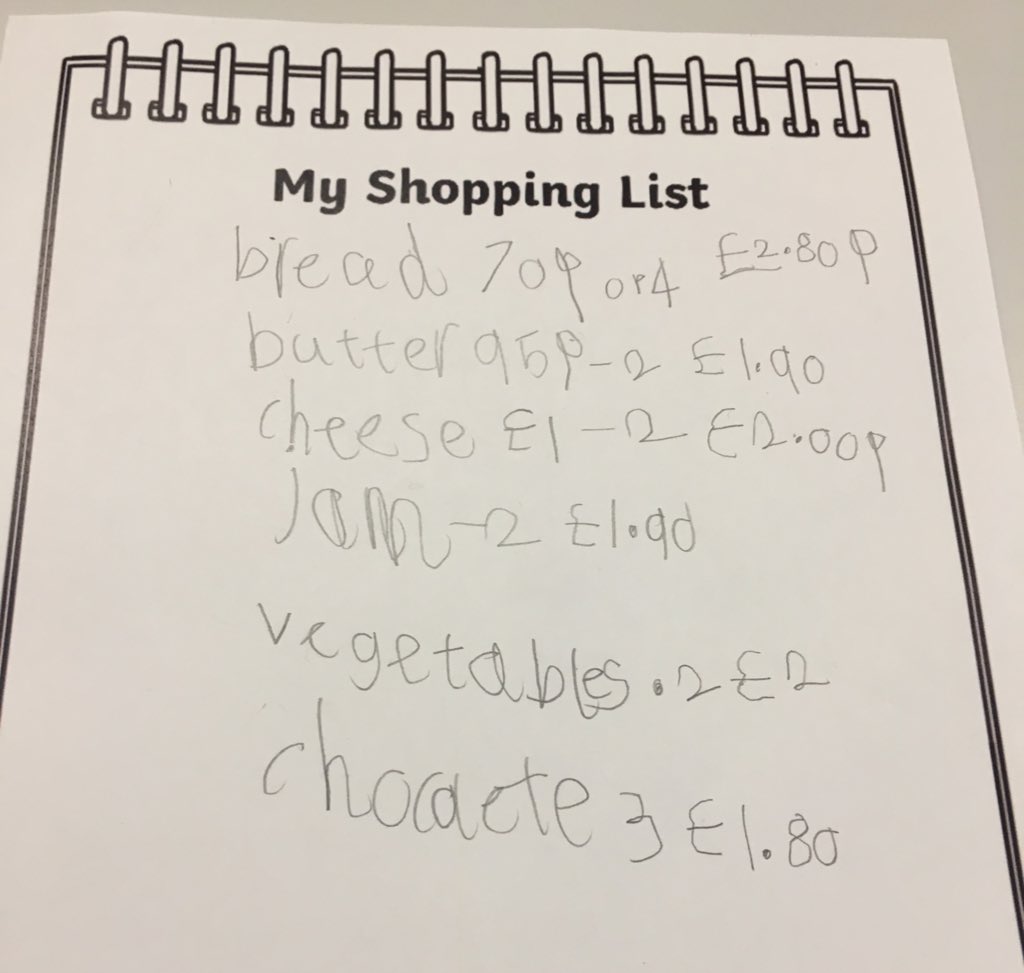 My Shopping List
bread 70p or4 £2.80p
butter 95p-2 £1.90
cheese £1-2 £2.00p
Jam-2 £1.90
vegetables.2 £2
chocacte 3 £1.80